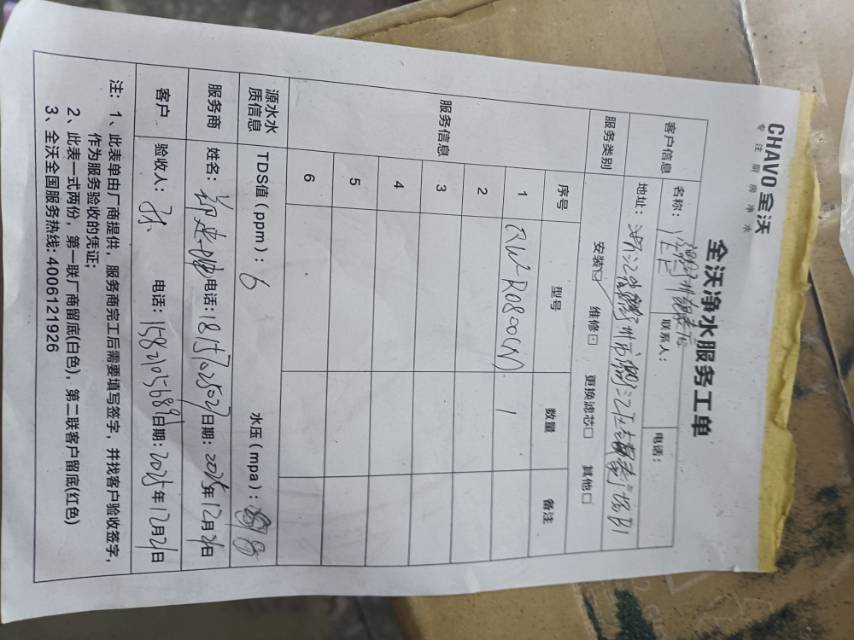 CHAVO全沃
专注厨房净水
全沃净水服务工单
客户信息
名称：
联系人：
电话：
地址：浙江省 州市 江区 场B1
服务类别
安装☑ 维修□ 更换滤芯□ 其他□
服务信息
序号 型号 数量 备注
1 QW-RO800(N) 1
2
3
4
5
6
源水水质信息
TDS值（ppm）：6 水压（mpa）：
服务商 姓名： 电话：18157025027 日期：2025年12月26日
客户 验收人：孙 电话： 日期：2025年12月26日
注：1、此表单由厂商提供，服务商完工后需要填写签字，并找客户验收签字，
作为服务验收的凭证；
2、此表一式两份，第一联厂商留底(白色)，第二联客户留底(红色)
3、全沃全国服务热线：4006121926